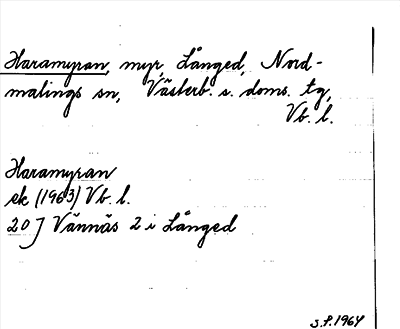 Haramyran, myr, Långed, Nord-
malings sn, Västerb. s. doms. tg,
Vb. l.
Haramyran
ek (1963) Vb. l.
20 J Vännäs 2 i Långed
S.P. 1964